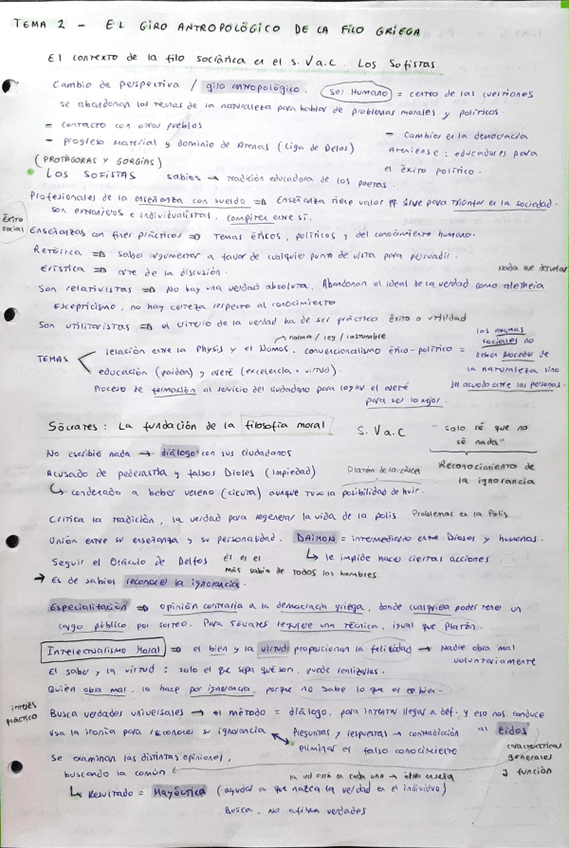 TEMA 2 - EL GIRO ANTROPOLÓGICO DE LA FILO GRIEGA
El contexto de la filo socrática en el S. V a.C. Los Sofistas
Cambio de perspectiva / giro antropológico. Ser Humano = centro de las cuestiones
se abandonan los temas de la naturaleza para hablar de problemas morales y políticos.
- contacto con otros pueblos
- Progreso material y dominio de Atenas (Liga de Delos)
- Cambios en la democracia
Ateniense: educadores para
el éxito político.
(PROTÁGORAS y GORGIAS)
LOS SOFISTAS sabios → Tradición educadora de los poetas.
Profesionales de la enseñanza con sueldo => Enseñanza tiene valor si sirve para triunfar en la sociedad.
son extranjeros e individualistas, compiten entre sí.
éxito social
Enseñanzas con fines prácticos => Temas éticos, políticos y del conocimiento humano.
Retórica => saber argumentar a favor de cualquier punto de vista para persuadir.
Erística => arte de la discusión.
Son relativistas => No hay una verdad absoluta. Abandonan el ideal de la verdad como aletheia
Escepticismo, no hay certeza respecto al conocimiento
Son utilitaristas => el criterio de la verdad ha de ser práctico éxito o utilidad
norma / ley / costumbre
TEMAS
relación entre la Physis y el Nomos. convencionalismo ético-político =
las normas
sociales no
deben proceder de
la naturaleza sino
del acuerdo entre las personas.
educación (paideia) y areté (excelencia + virtud)
Proceso de formación al servicio del ciudadano para lograr el areté
para ser lo mejor.
Sócrates: La fundación de la filosofía moral S. V a.C
"solo sé que no
sé nada"
Reconocimiento de
la ignorancia
No escribió nada → diálogo con sus ciudadanos
Acusado de pederastia y falsos Dioses (impiedad)
↳ condenado a beber veneno (cicuta) aunque tuvo la posibilidad de huir.
Critica la tradición, la verdad para regenerar la vida de la polis Problemas en la Polis
Unión entre su enseñanza y su personalidad. DAIMON = intermediario entre Dioses y humanos.
↳ le impide hacer ciertas acciones
Seguir el Oráculo de Delfos él es el
más sabio de todos los hombres
→ Es de sabios reconocer la ignorancia.
Especialización => opinión contraria a la democracia griega, donde cualquiera poder tener un
cargo público por sorteo. Para Sócrates requiere una técnica, igual que Platón.
Intelectualismo Moral => el bien y la virtud proporcionan la felicidad → Nadie obra mal
voluntariamente
El saber y la virtud: solo el que sepa qué son, puede realizarlos.
Quien obra mal, lo hace por ignorancia, porque no sabe lo que es el bien.
interés práctico
Busca verdades universales → el método = diálogo, para intentar llegar a def. y eso nos conduce
al eidos
Usa la ironía para reconocer su ignorancia
Preguntas y respuestas → contradicción
eliminar el falso conocimiento
características
generales
y función
Se examinan las distintas opiniones,
buscando lo común
↳ Resultado = Mayéutica (ayudar a que nazca la verdad en el individuo)
Busca, no afirman verdades